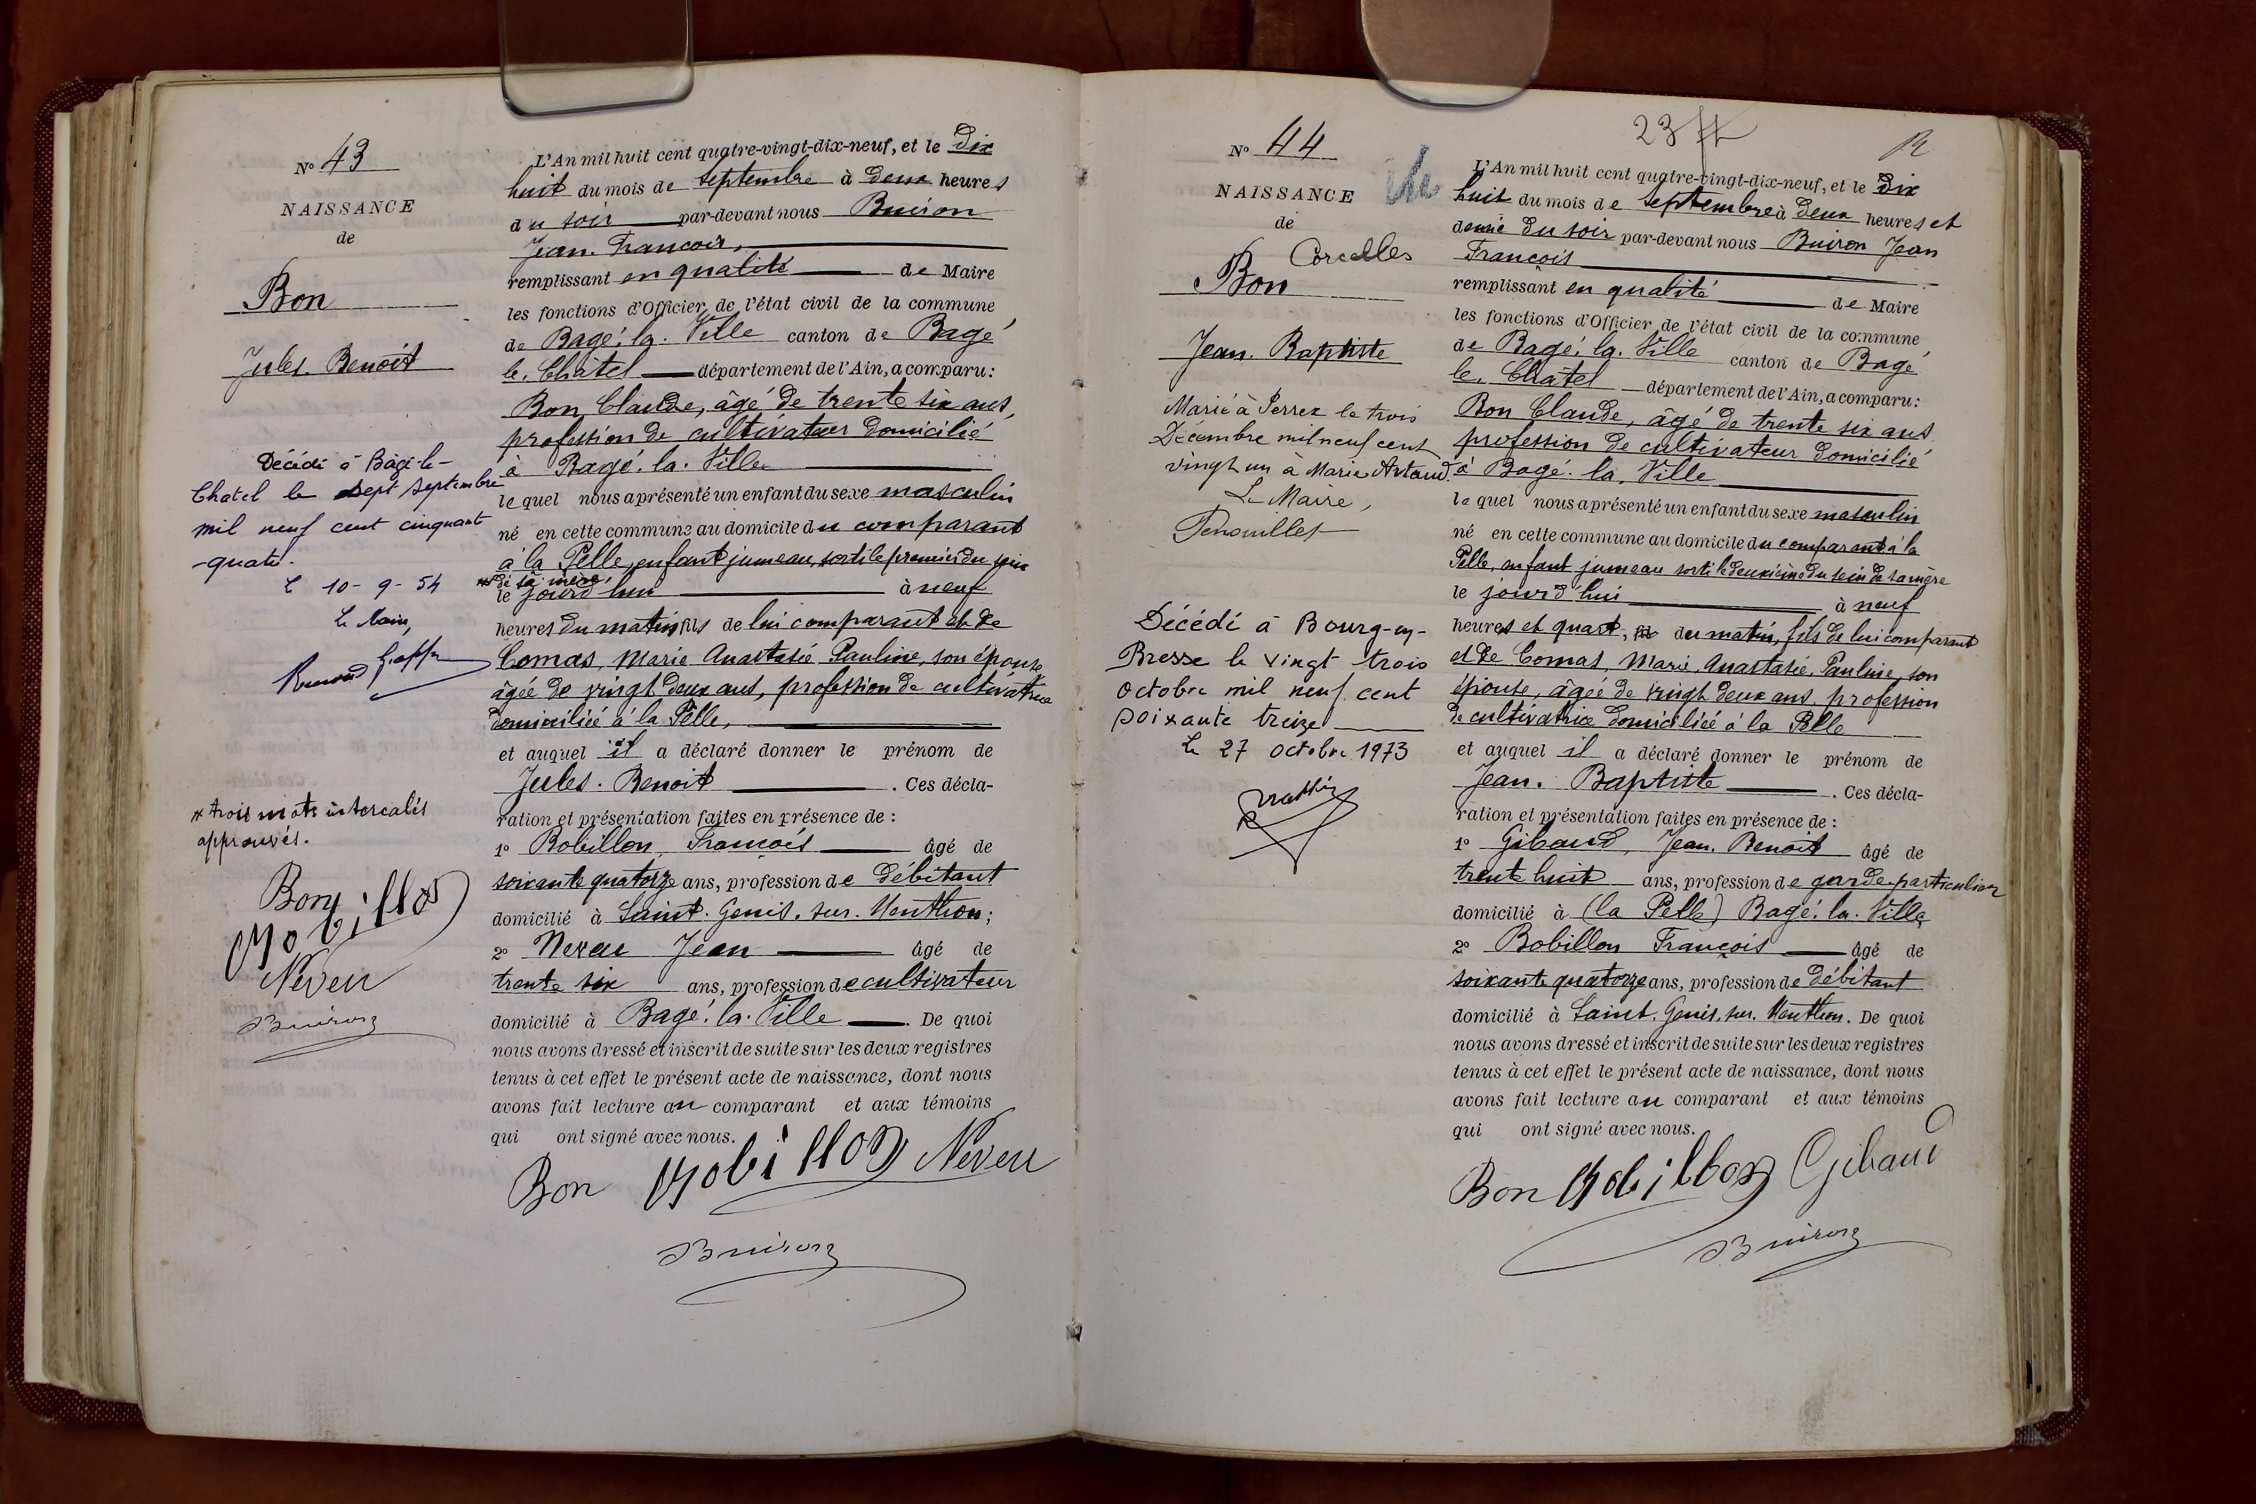 N° 43
NAISSANCE
de
Bon
Jules. Benoit
Décédé à Bâgé-le-
Chatel le sept septembre
mil neuf cent cinquant
-quatre.
le 10-9-54
Le Maire,
* trois mots intercalés
approuvés.
Bon
Bobillon
Neveu
Buiron
L'An mil huit cent quatre-vingt-dix-neuf, et le Dix
huit du mois de Septembre à deux heures
du soir par-devant nous Buiron
Jean. François,
remplissant en qualité de Maire
les fonctions d'Officier de l'état civil de la commune
de Bagé. la. Ville canton de Bagé
le. Châtel département de l'Ain, a comparu:
Bon, Claude, âgé de trente six ans,
profession de cultivateur domicilié
à Bagé. la. Ville
lequel nous a présenté un enfant du sexe masculin
né en cette commune au domicile du comparant
à la Pelle, enfant jumeau, sorti le premier du sein
* de sa mère,
le jourd'hui à neuf
heures du matin fils de lui comparant et de
Comas, Marie Anastasie Pauline, son épouse,
âgée de vingt deux ans, profession de cultivatrice
domiciliée à la Pelle,
et auquel il a déclaré donner le prénom de
Jules. Benoit. Ces décla-
ration et présentation faites en présence de :
1° Bobillon, François âgé de
soixante quatorze ans, profession de débitant
domicilié à Saint. Genis. sur. Menthon;
2° Neveu Jean âgé de
trente six ans, profession de cultivateur
domicilié à Bagé. la. Ville. De quoi
nous avons dressé et inscrit de suite sur les deux registres
tenus à cet effet le présent acte de naissance, dont nous
avons fait lecture au comparant et aux témoins
qui ont signé avec nous.
Bon Bobillon Neveu
Buiron
23
R
N° 44
NAISSANCE
de
Corcelles
Bon
Jean. Baptiste
Marié à Perrex le trois
Décembre mil neuf cent
vingt un à Marie Artaud.
Le Maire,
Décédé à Bourg-en-
Bresse le vingt trois
octobre mil neuf cent
soixante treize
Le 27 octobre 1973
L'An mil huit cent quatre-vingt-dix-neuf, et le Dix
huit du mois de Septembre à deux heures et
demie du soir par-devant nous Buiron Jean
François
remplissant en qualité de Maire
les fonctions d'Officier de l'état civil de la commune
de Bagé. la. Ville canton de Bagé
le. Châtel département de l'Ain, a comparu:
Bon Claude, âgé de trente six ans
profession de cultivateur domicilié
à Bagé. la. Ville
lequel nous a présenté un enfant du sexe masculin
né en cette commune au domicile du comparant à la
Pelle, enfant jumeau sorti le deuxième du sein de sa mère
le jourd'hui à neuf
heures et quart, du matin, fils de lui comparant
et de Comas, Marie, Anastasie, Pauline, son
épouse, âgée de vingt deux ans, profession
de cultivatrice domiciliée à la Pelle
et auquel il a déclaré donner le prénom de
Jean. Baptiste. Ces décla-
ration et présentation faites en présence de :
1° Gibaud, Jean. Benoit âgé de
trente huit ans, profession de garde-particulier
domicilié à (la Pelle) Bagé. la. Ville,
2° Bobillon François âgé de
soixante quatorze ans, profession de débitant
domicilié à Saint. Genis. sur. Menthon. De quoi
nous avons dressé et inscrit de suite sur les deux registres
tenus à cet effet le présent acte de naissance, dont nous
avons fait lecture au comparant et aux témoins
qui ont signé avec nous.
Bon Bobillon Gibaud
Buiron